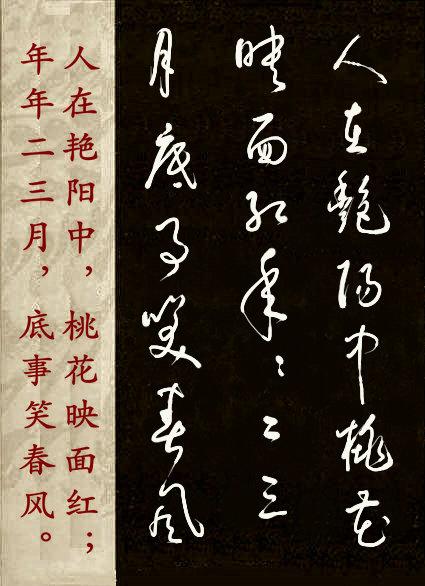 人在艳阳中桃花
映面红年〻二三
月底事笑春风
人在艳阳中，桃花映面红；
年年二三月，底事笑春风。